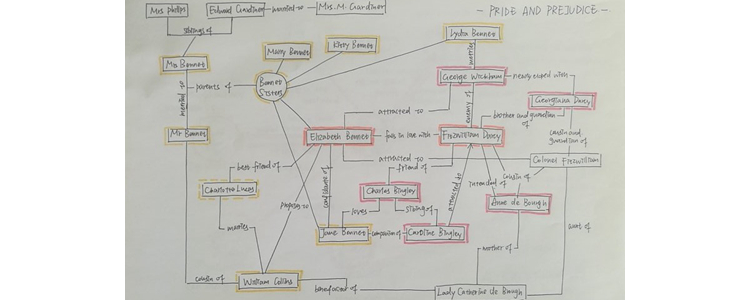 Mrs phelips
Edward Gardiner
married to
Mrs. M. Gardiner
- PRIDE AND PREJUDICE -
siblings of
Lydia Bennet
Marry Bennet
Kitty Bennet
marries
Mrs Bennet
George Wickham
nearly eloped with
parents of
Bennet
Sisters
married to
Georgiana Darcy
enemy of
attracted to
brother and guardian
of
Mr Bennet
Elizabeth Bennet
falls in love with
Fitzwilliam Darcy
cousin and
guardian of
attracted to
Colonel Fitzwilliam
best friend of
friend of
cousin of
Charlotte Lucas
confidante of
Charles Bingley
attracted to
intended of
Anne de Bough
proposes to
loves
sibling of
marries
Jane Bennet
companion of
Caroline Bingley
aunt of
mother of
cousin of
William Collins
benefactor of
Lady Catherine de Bough